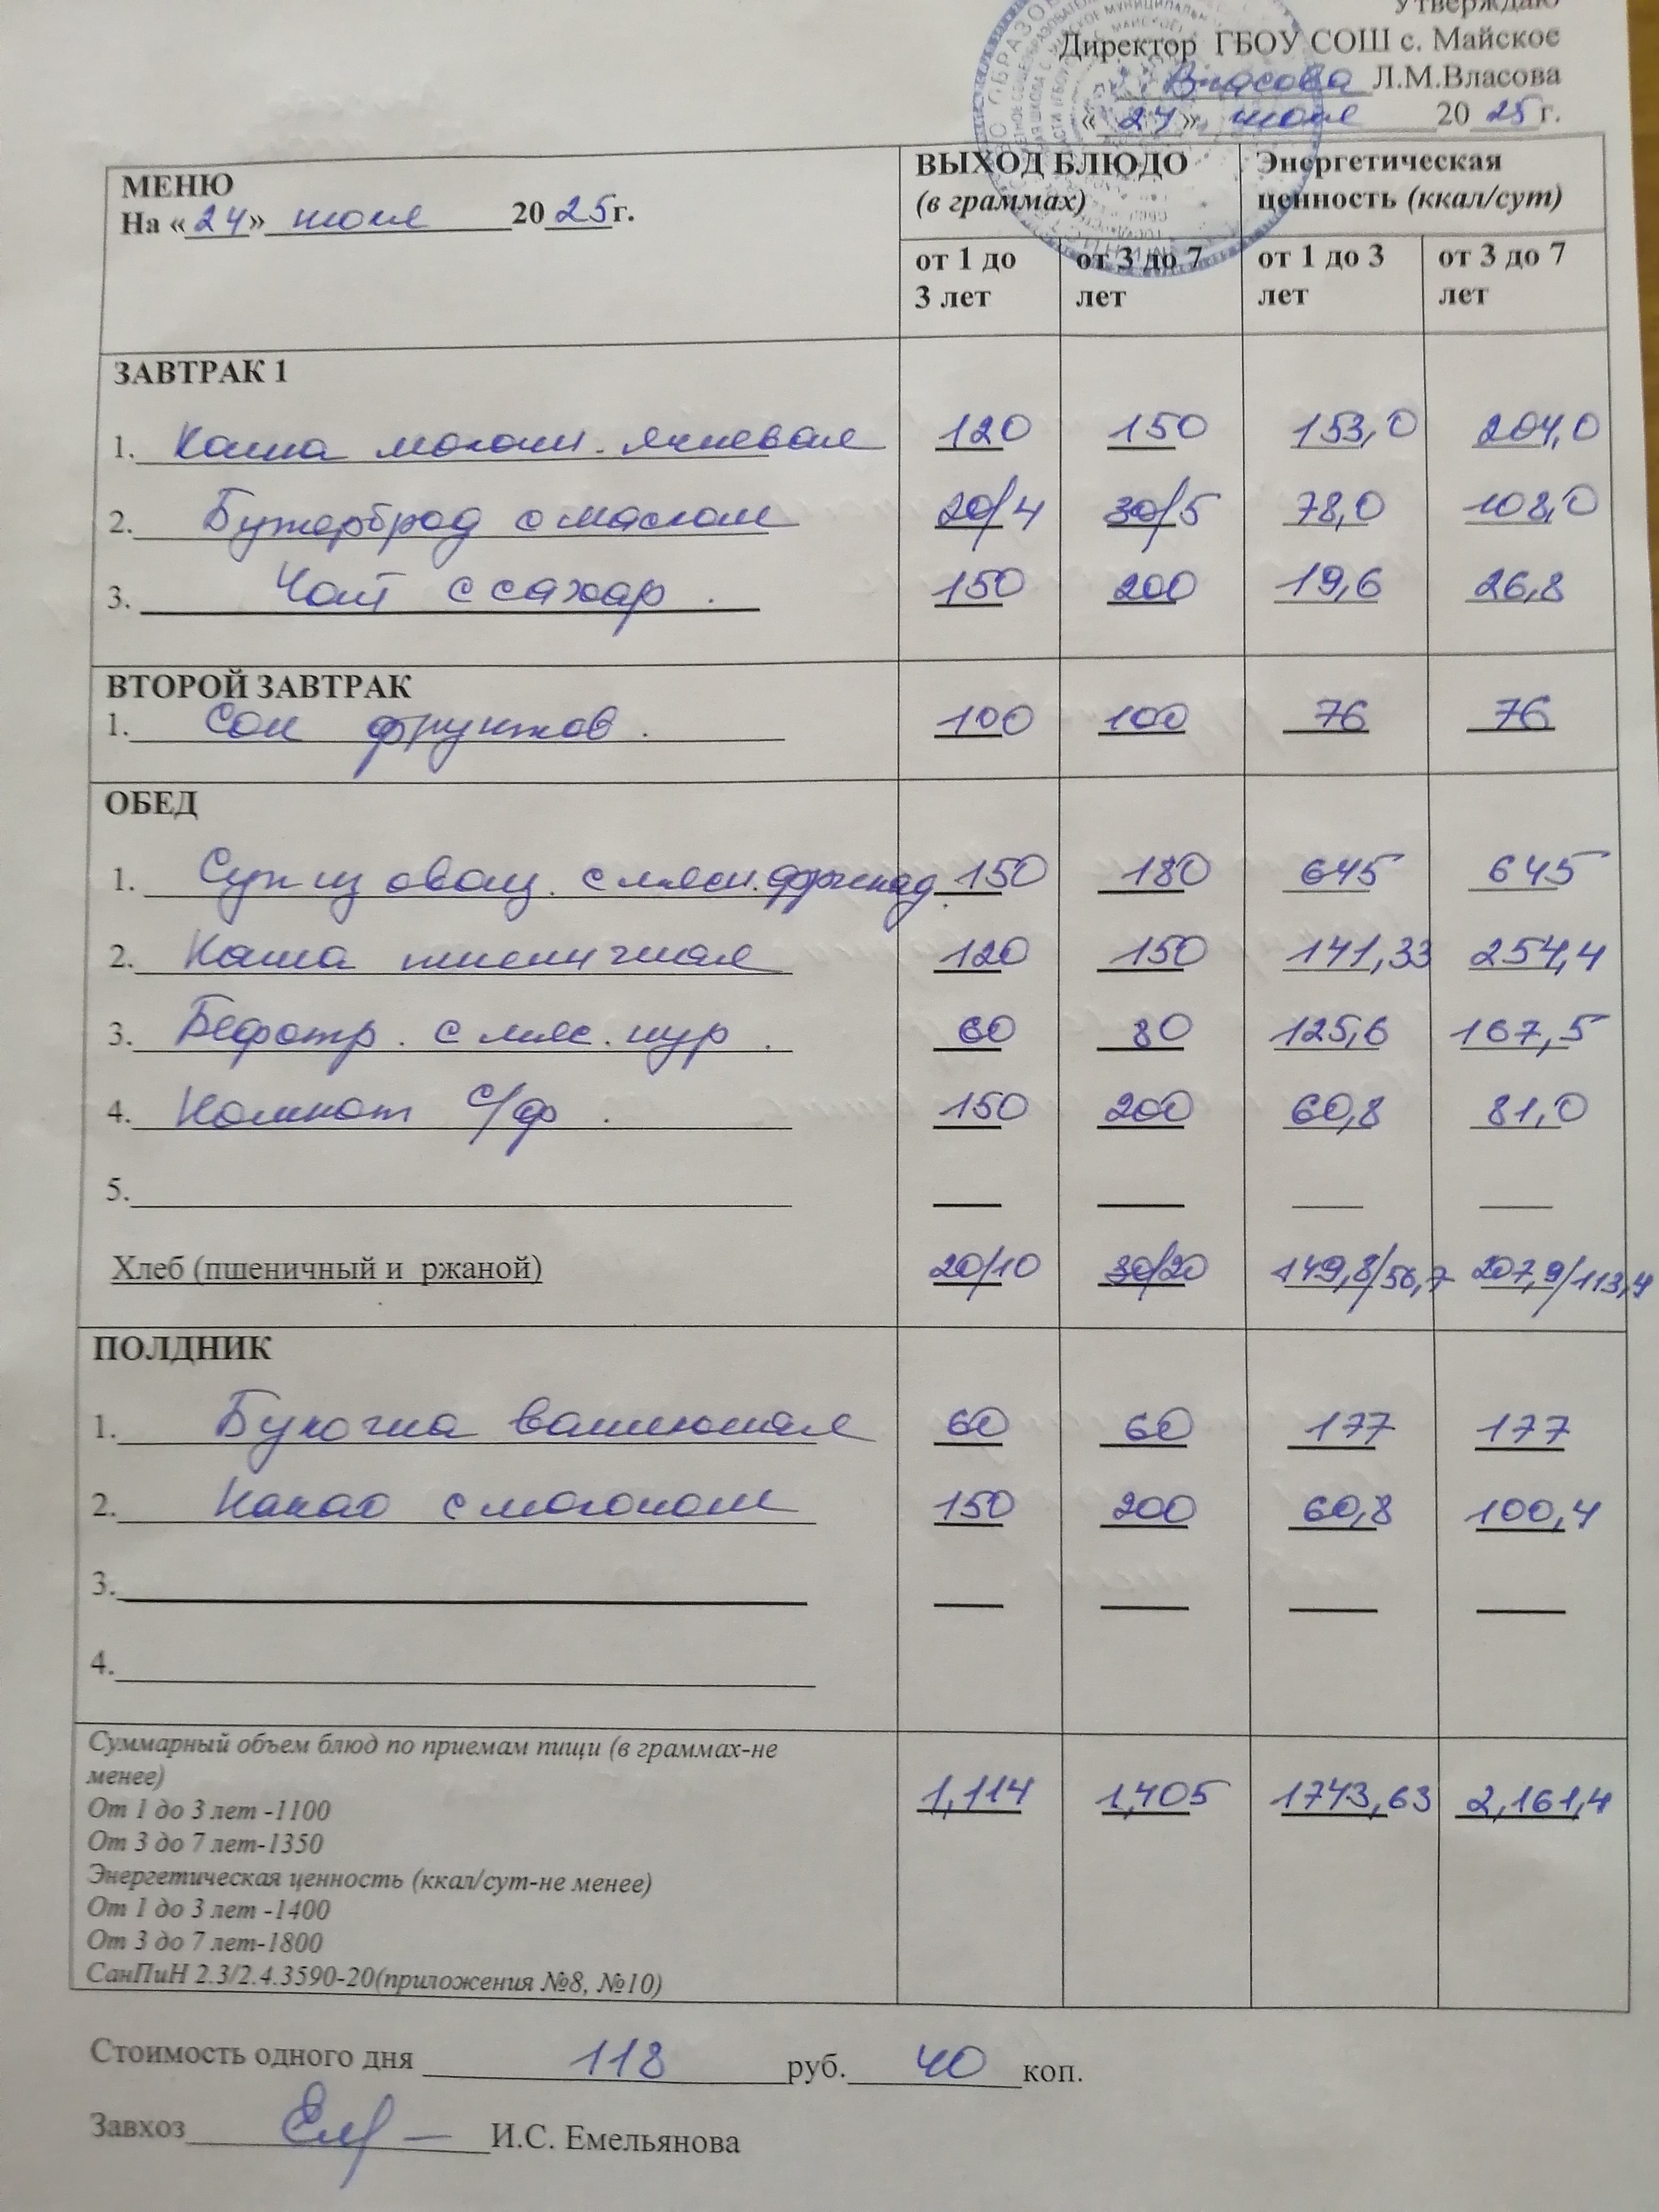 Утверждаю
Директор ГБОУ СОШ с. Майское
Власова Л.М.Власова
«24» июля 2025г.
МЕНЮ
На «24» июля 2025г.
ВЫХОД БЛЮДО
(в граммах)
Энергетическая
ценность (ккал/сут)
от 1 до
3 лет
от 3 до 7
лет
от 1 до 3
лет
от 3 до 7
лет
ЗАВТРАК 1
1. Каша молочн. ячневая 120 150 153,0 204,0
2. Бутерброд с маслом 20/4 30/5 78,0 108,0
3. Чай с сахар. 150 200 19,6 26,8
ВТОРОЙ ЗАВТРАК
1. Сок фруктов. 100 100 76 76
ОБЕД
1. Суп из овощ. с мясн. фрикад. 150 180 645 645
2. Каша пшеничная 120 150 141,33 254,4
3. Бефстр. с мяс. кур. 60 80 125,6 167,5
4. Компот с/ф. 150 200 60,8 81,0
5.
Хлеб (пшеничный и ржаной) 20/10 30/20 149,8/56,7 207,9/113,4
ПОЛДНИК
1. Булочка ванильная 60 60 177 177
2. Какао с молоком 150 200 60,8 100,4
3.
4.
Суммарный объем блюд по приемам пищи (в граммах-не
менее)
От 1 до 3 лет -1100
От 3 до 7 лет-1350
Энергетическая ценность (ккал/сут-не менее)
От 1 до 3 лет -1400
От 3 до 7 лет-1800
СанПиН 2.3/2.4.3590-20(приложения №8, №10)
1,114 1,405 1743,63 2,161,4
Стоимость одного дня 118 руб. 40 коп.
Завхоз И.С. Емельянова